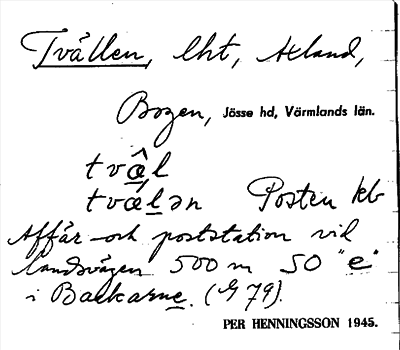 Tvällen, lht, Axland,
Bogen, Jösse hd, Värmlands län.
tvâ̱l
tvá̱lən Posten kb
Affär- och poststation vid
landsvägen 500 m SO "e"
i Backarne. (G 79).
PER HENNINGSSON 1945.